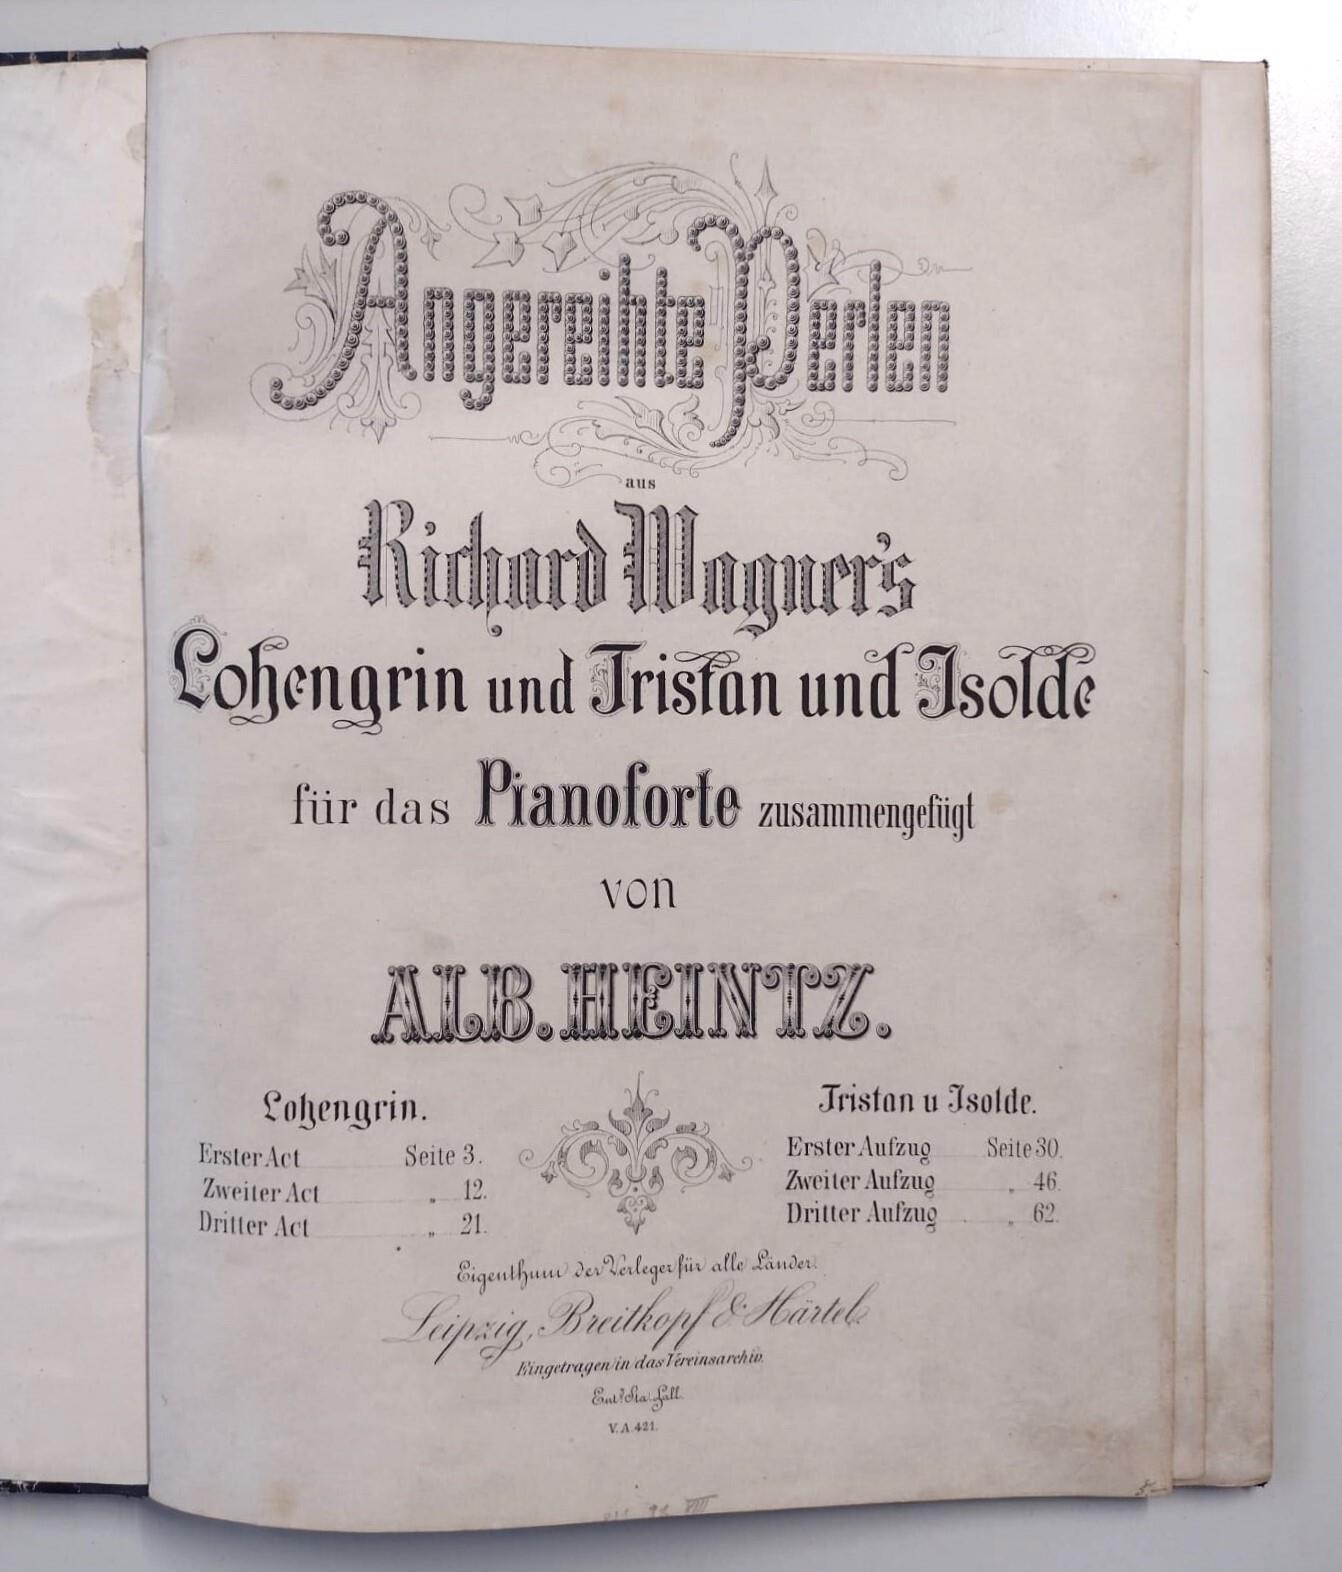 Angereihte Perlen
aus
Richard Wagner's
Lohengrin und Tristan und Isolde
für das Pianoforte zusammengefügt
von
ALB. HEINTZ.
Lohengrin.
Erster Act Seite 3.
Zweiter Act " 12.
Dritter Act " 21.
Tristan u Isolde.
Erster Aufzug Seite 30.
Zweiter Aufzug " 46.
Dritter Aufzug " 62.
Eigenthum der Verleger für alle Länder.
Leipzig, Breitkopf & Härtel.
Eingetragen in das Vereinsarchiv.
Ent. Sta. Hall.
V. A. 421.